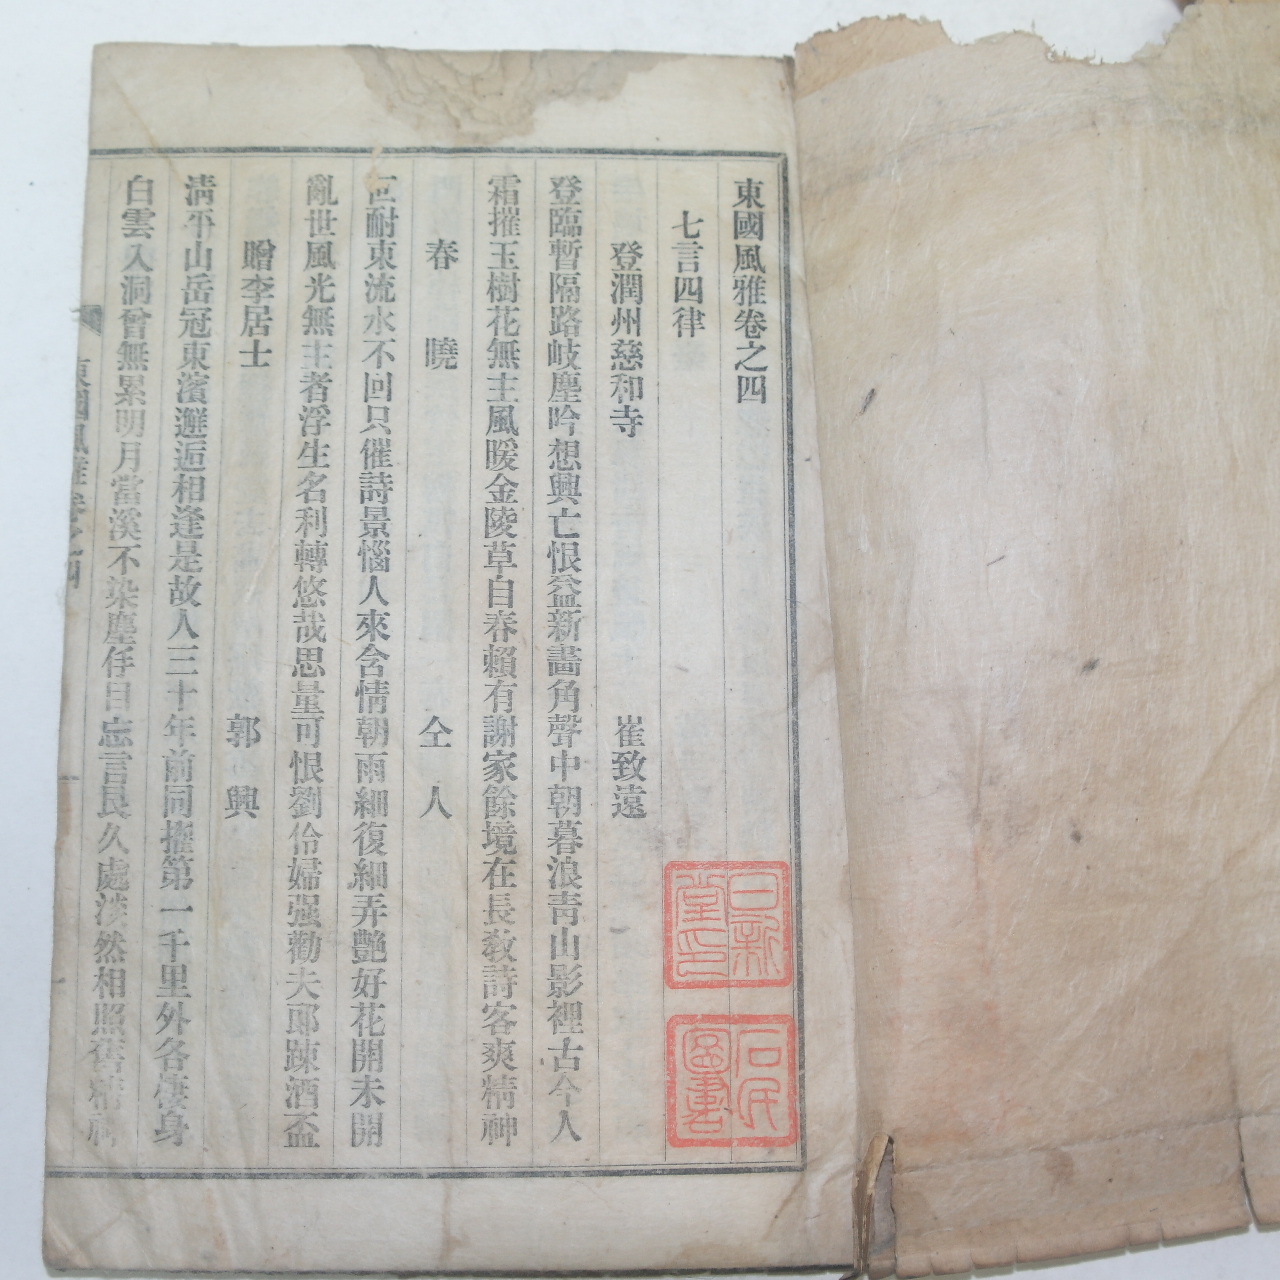 東國風雅卷之四
七言四律
登潤州慈和寺 崔致遠
登臨暫隔路岐塵吟想興亡恨益新畵角聲中朝暮浪靑山影裡古今人
霜摧玉樹花無主風暖金陵草自春賴有謝家餘境在長敎詩客爽精神
春曉 仝人
叵耐東流水不回只催詩景惱人來含情朝雨細復細弄艶好花開未開
亂世風光無主者浮生名利轉悠哉思量可恨劉伶婦强勸夫郞踈酒盃
贈李居士 郭興
淸平山岳冠東濱邂逅相逢是故人三十年前同擢第一千里外各棲身
白雲入洞曾無累明月當溪不染塵 目忘言良久處 然相照舊精神
東國風雅卷之四
日新堂印
石民圖書